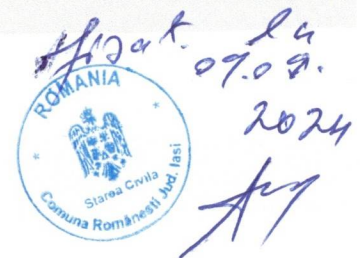 Afișat la
09.09.
2024
ROMANIA
Starea Civila
Comuna Românești Jud. Iasi